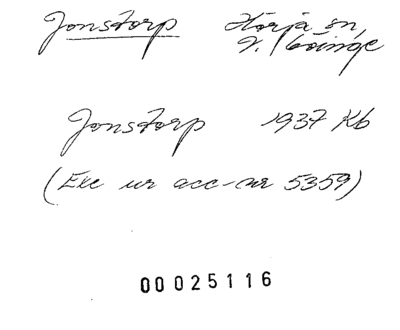 Jonstorp Hörja sn,
V. Göinge
Jonstorp 1937 Kb
(Exc ur acc-nr 5359)
00025116